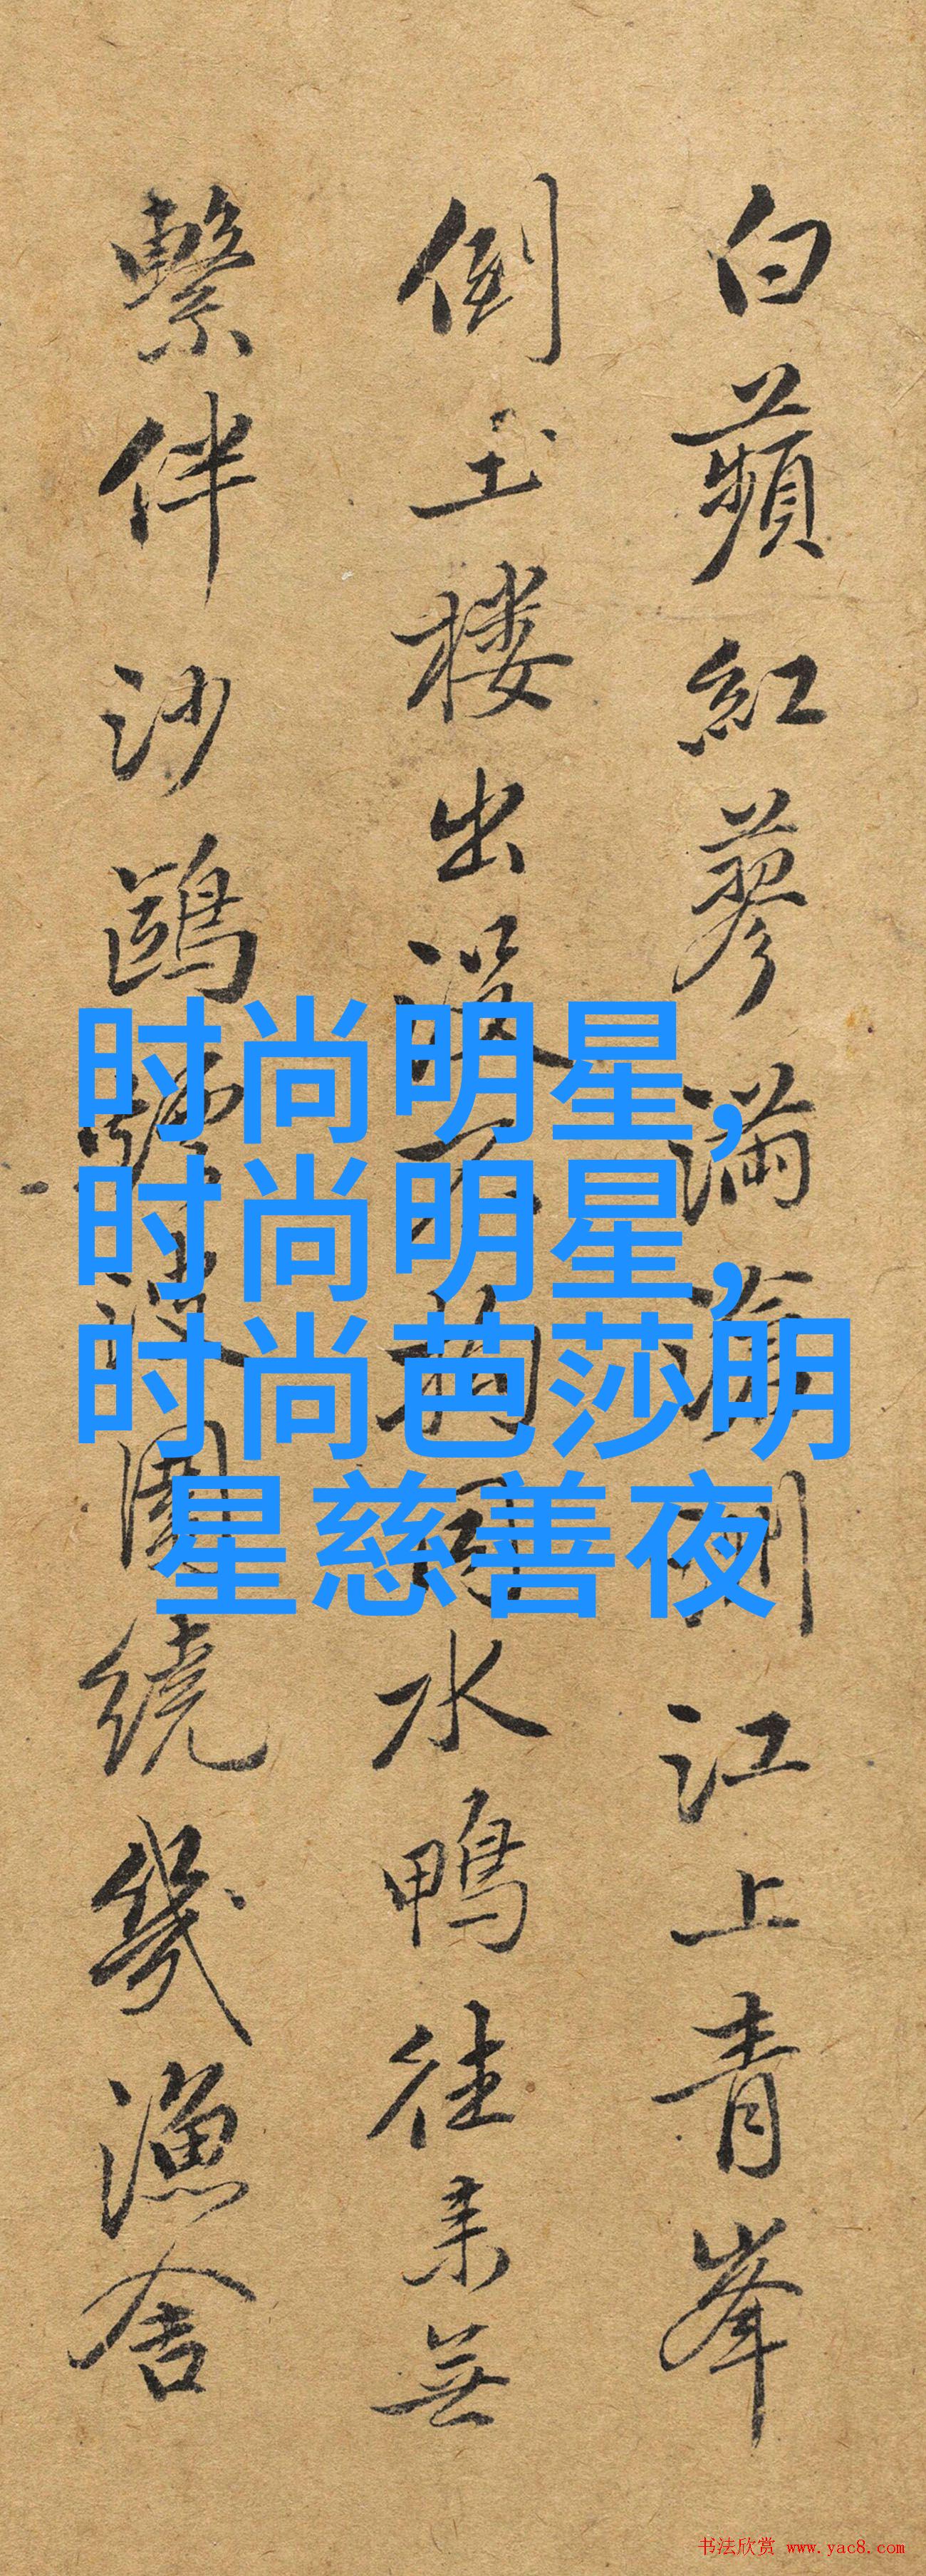 白蘋紅蓼滿江上青峯
倒玉楼出没不拘水鴨往来無
繫伴沙鷗圍繞幾漁舍
时尚明星,
时尚明星,
时尚芭莎明
星慈善夜
书法欣赏 www.yac8.com